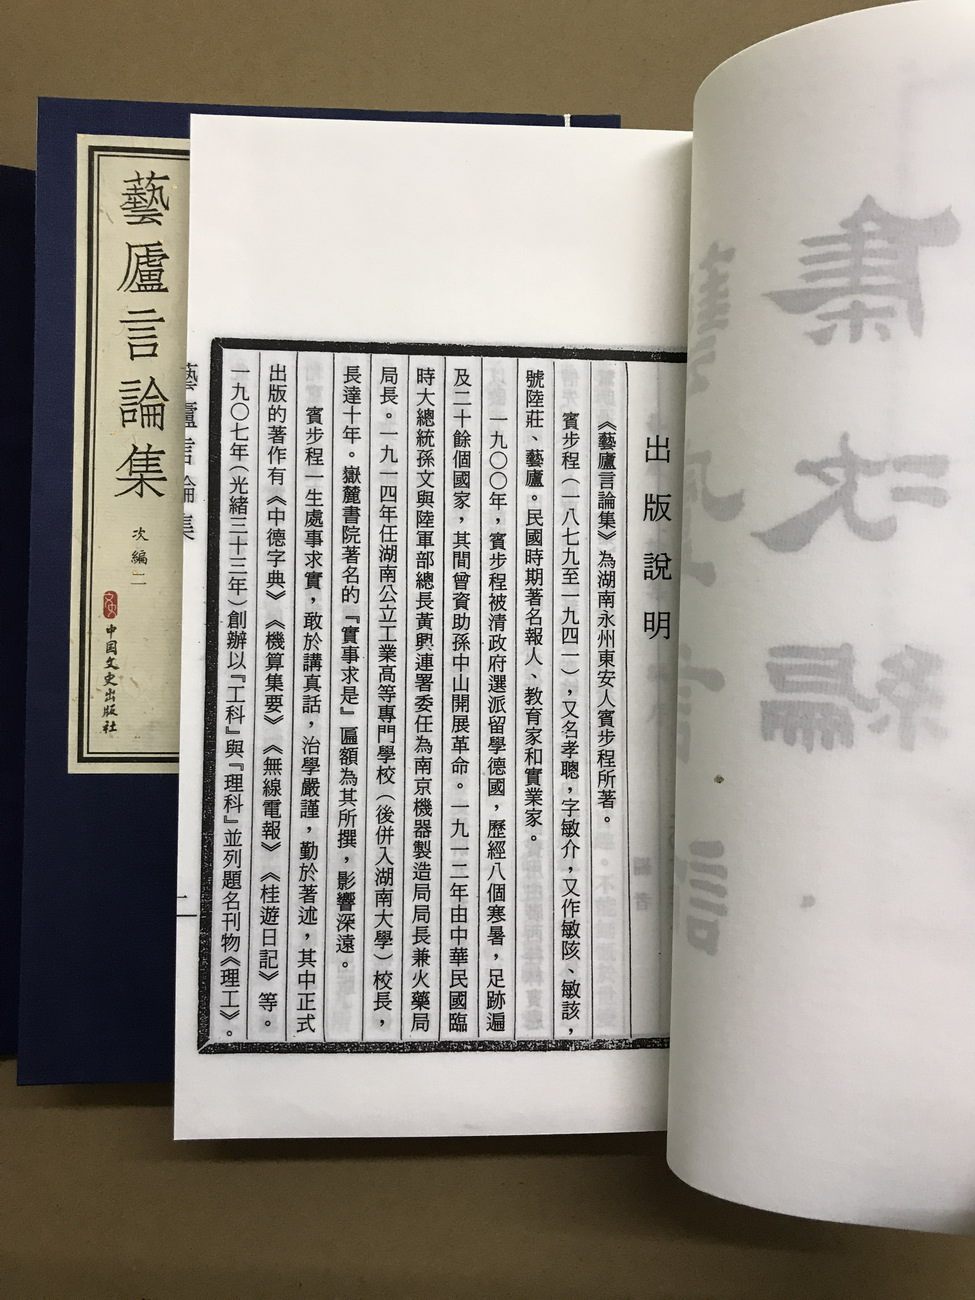 出版說明
《藝廬言論集》為湖南永州東安人賓步程所著。
賓步程（一八七九至一九四一），又名孝聰，字敏介，又作敏陔、敏該，
號陸莊、藝廬。民國時期著名報人、教育家和實業家。
一九〇〇年，賓步程被清政府選派留學德國，歷經八個寒暑，足跡遍
及二十餘個國家，其間曾資助孫中山開展革命。一九一二年由中華民國臨
時大總統孫文與陸軍部總長黃興連署委任為南京機器製造局局長兼火藥局
局長。一九一四年任湖南公立工業高等專門學校（後併入湖南大學）校長，
長達十年。嶽麓書院著名的『實事求是』匾額為其所撰，影響深遠。
賓步程一生處事求實，敢於講真話，治學嚴謹，勤於著述，其中正式
出版的著作有《中德字典》《機算集要》《無線電報》《桂遊日記》等。
一九〇七年（光緒三十三年）創辦以『工科』與『理科』並列題名刊物《理工》。
藝廬言論集
一
藝廬言論集
次編二
中国文史出版社